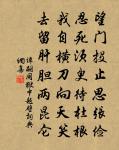 望門投止思張儉
忍死須臾待杜根
我自橫刀向天笑
去留肝胆兩昆仑
譚嗣同獄中題壁詞典